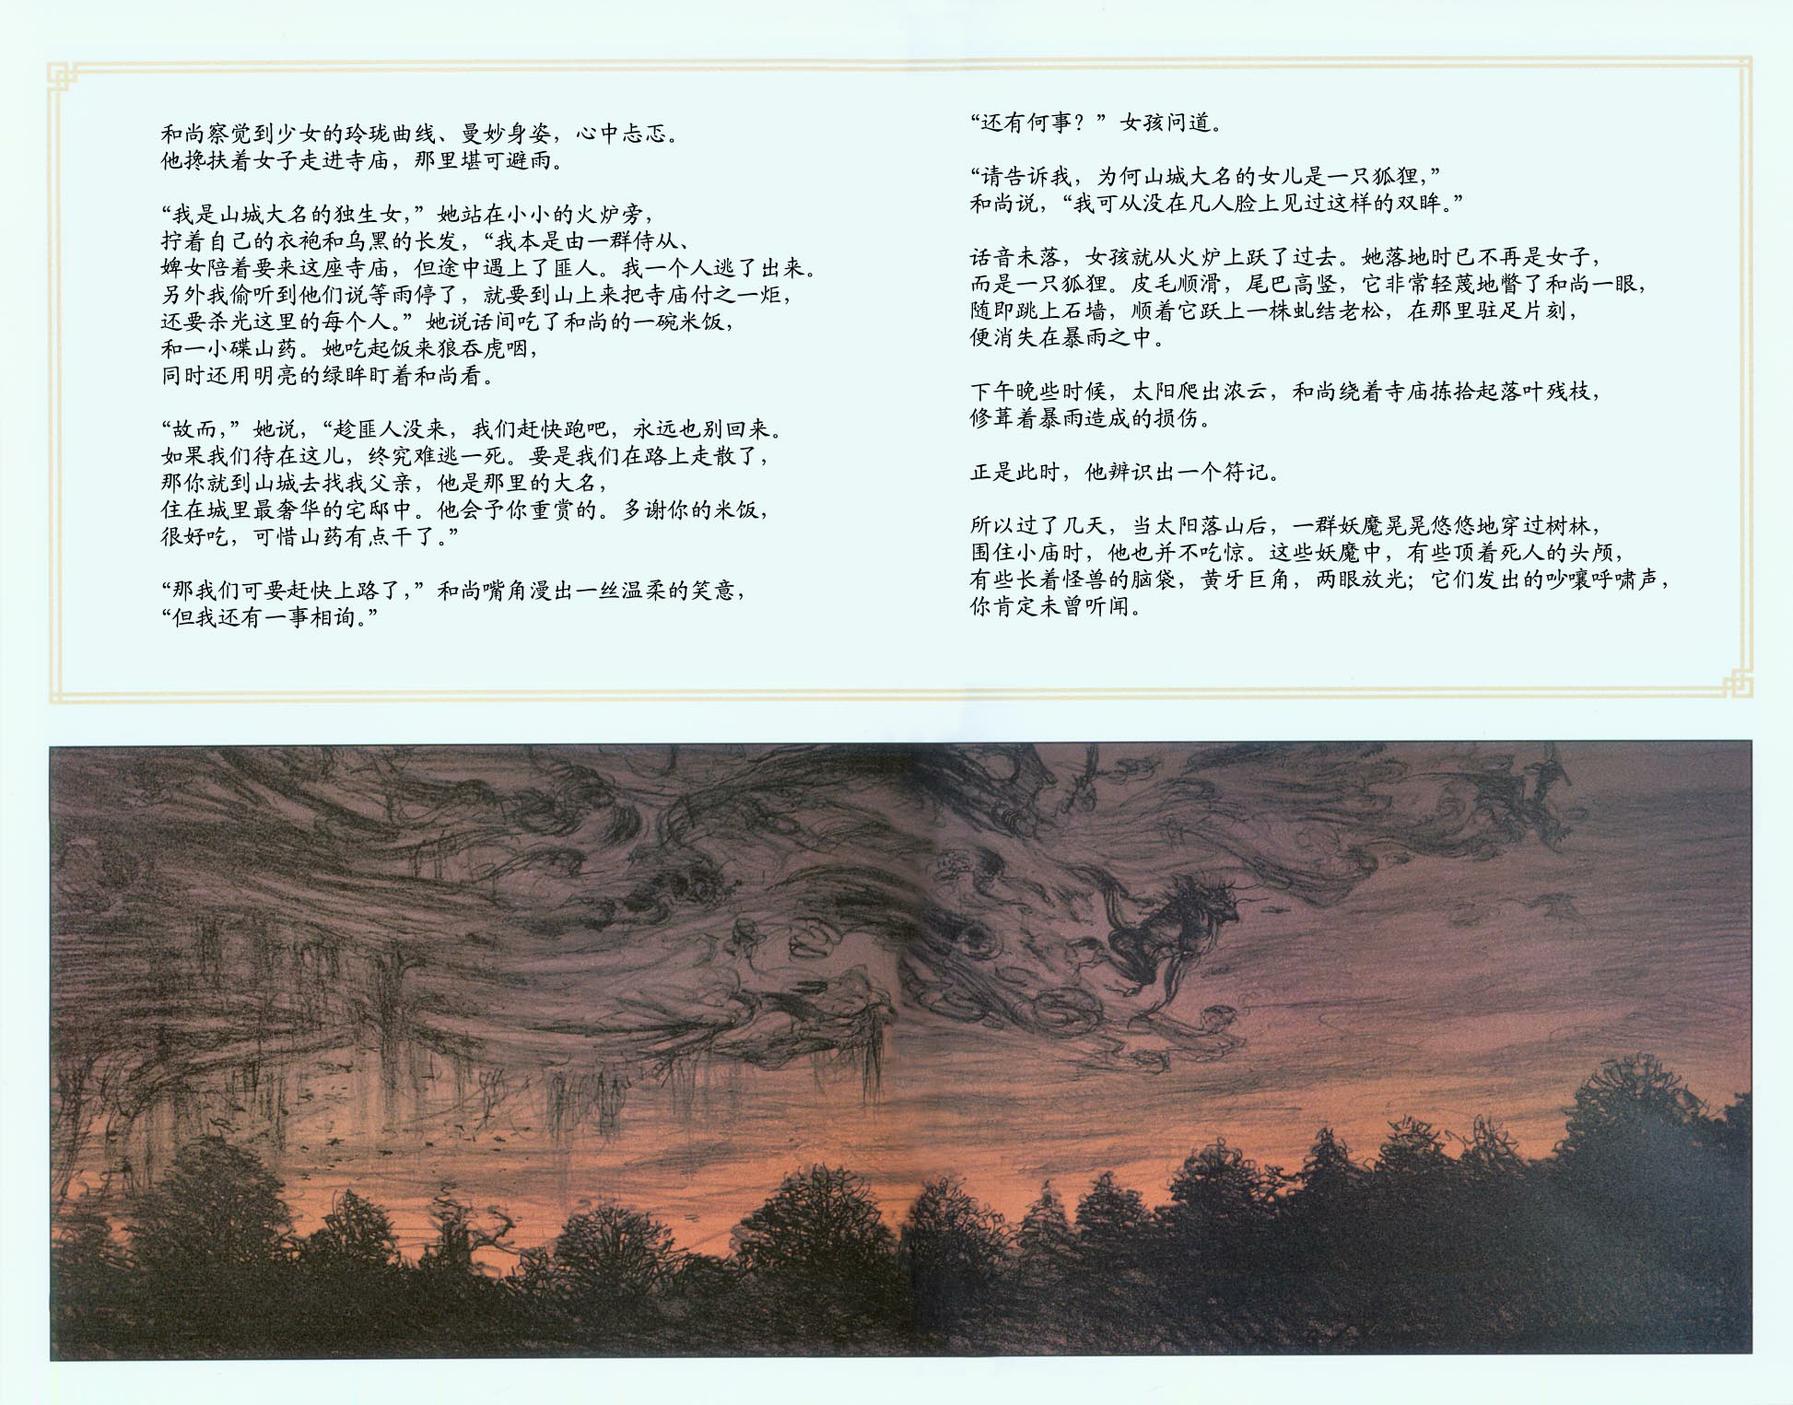 和尚察觉到少女的玲珑曲线、曼妙身姿，心中忐忑。
他搀扶着女子走进寺庙，那里堪可避雨。
“我是山城大名的独生女，”她站在小小的火炉旁，
拧着自己的衣袍和乌黑的长发，“我本是由一群侍从、
婢女陪着要来这座寺庙，但途中遇上了匪人。我一个人逃了出来。
另外我偷听到他们说等雨停了，就要到山上来把寺庙付之一炬，
还要杀光这里的每个人。”她说话间吃了和尚的一碗米饭，
和一小碟山药。她吃起饭来狼吞虎咽，
同时还用明亮的绿眸盯着和尚看。
“故而，”她说，“趁匪人没来，我们赶快跑吧，永远也别回来。
如果我们待在这儿，终究难逃一死。要是我们在路上走散了，
那你就到山城去找我父亲，他是那里的大名，
住在城里最奢华的宅邸中。他会予你重赏的。多谢你的米饭，
很好吃，可惜山药有点干了。”
“那我们可要赶快上路了，”和尚嘴角漫出一丝温柔的笑意，
“但我还有一事相询。”
“还有何事？”女孩问道。
“请告诉我，为何山城大名的女儿是一只狐狸，”
和尚说，“我可从没在凡人脸上见过这样的双眸。”
话音未落，女孩就从火炉上跃了过去。她落地时已不再是女子，
而是一只狐狸。皮毛顺滑，尾巴高竖，它非常轻蔑地瞥了和尚一眼，
随即跳上石墙，顺着它跃上一株虬结老松，在那里驻足片刻，
便消失在暴雨之中。
下午晚些时候，太阳爬出浓云，和尚绕着寺庙拣拾起落叶残枝，
修葺着暴雨造成的损伤。
正是此时，他辨识出一个符记。
所以过了几天，当太阳落山后，一群妖魔晃晃悠悠地穿过树林，
围住小庙时，他也并不吃惊。这些妖魔中，有些顶着死人的头颅，
有些长着怪兽的脑袋，黄牙巨角，两眼放光；它们发出的吵嚷呼啸声，
你肯定未曾听闻。